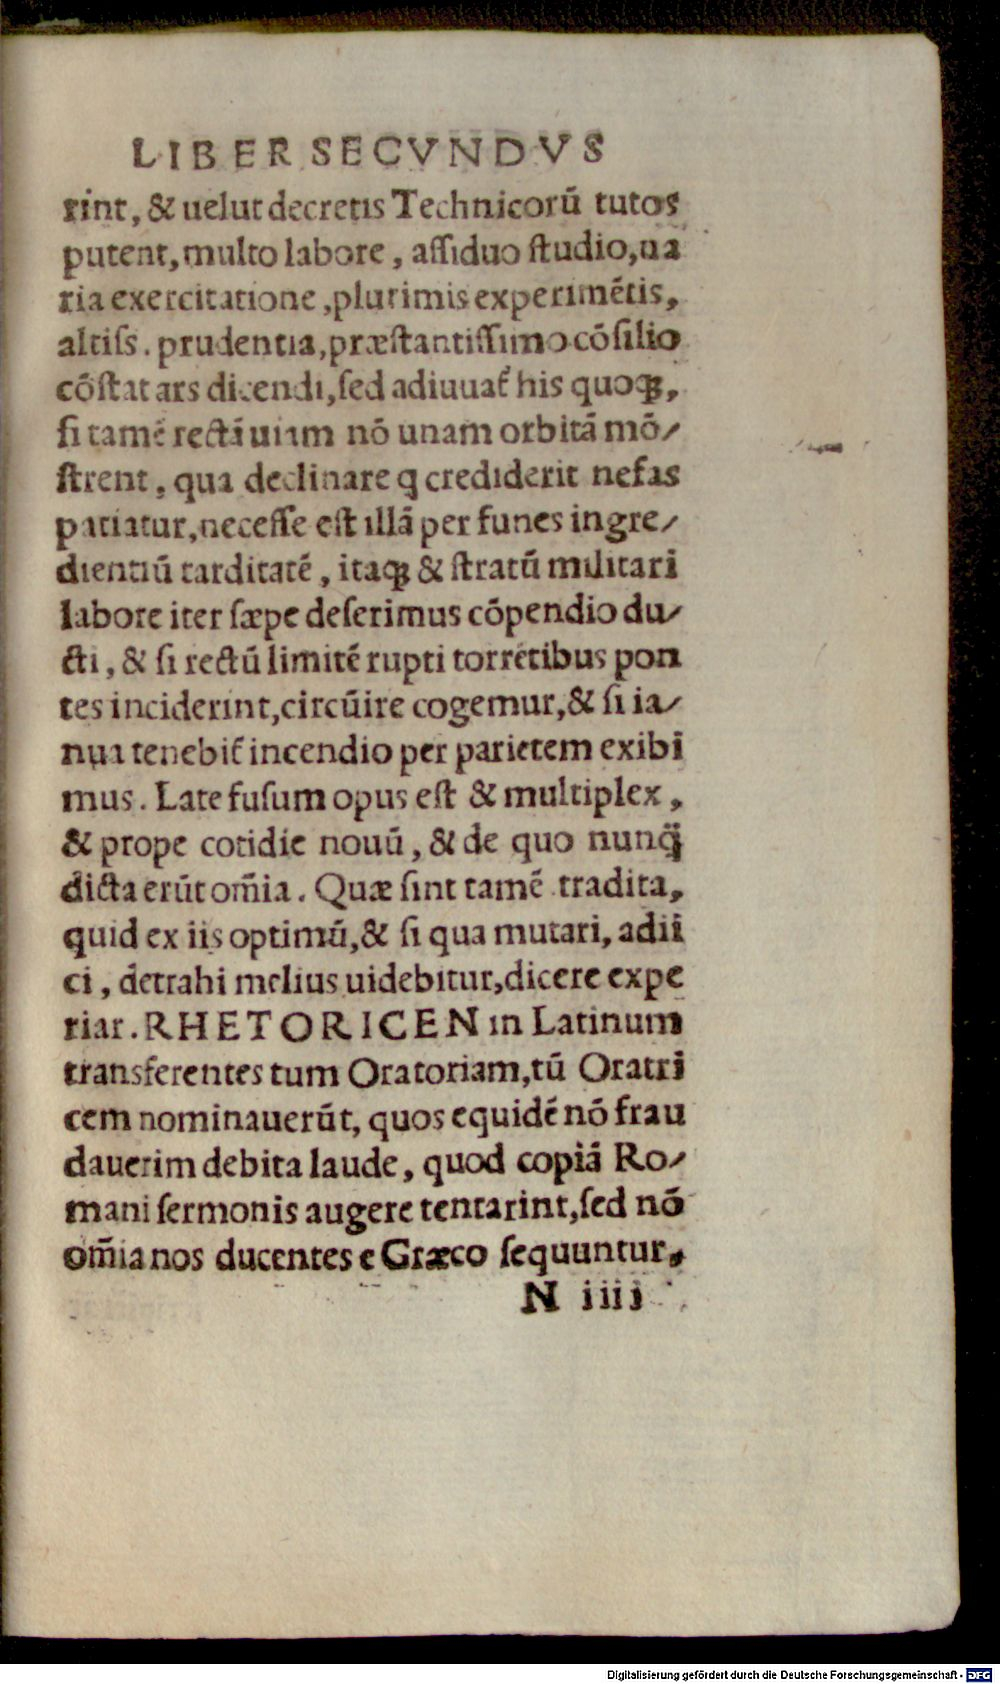 LIBER SECVNDVS
rint, & uelut decretis Technicorū tutos
putent, multo labore, aſſiduo ſtudio, ua
ria exercitatione, plurimis experimētis,
altiſs. prudentia, præſtantiſſimo cōſilio
cōſtat ars dicendi, ſed adiuuat᷑ his quoqꝫ,
ſi tamē rectā uiam nō unam orbitā mō⸗
ſtrent, qua declinare q crediderit nefas
patiatur, neceſſe eſt illā per funes ingre⸗
dientiū tarditatē, itaqꝫ & ſtratū militari
labore iter ſæpe deſerimus cōpendio du⸗
cti, & ſi rectū limitē rupti torrētibus pon
tes inciderint, circūire cogemur, & ſi ia⸗
nua tenebit᷑ incendio per parietem exibi
mus. Late fuſum opus eſt & multiplex,
& prope cotidie nouū, & de quo nunq̈
dicta erūt om̄ia. Quæ ſint tamē tradita,
quid ex iis optimū, & ſi qua mutari, adii
ci, detrahi melius uidebitur, dicere expe
riar. RHETORICEN in Latinum
transferentes tum Oratoriam, tū Oratri
cem nominauerūt, quos equidē nō frau
dauerim debita laude, quod copiā Ro⸗
mani ſermonis augere tentarint, ſed nō
om̄ia nos ducentes e Græco ſequuntur,
N iiii
Digitalisierung gefördert durch die Deutsche Forschungsgemeinschaft - DFG